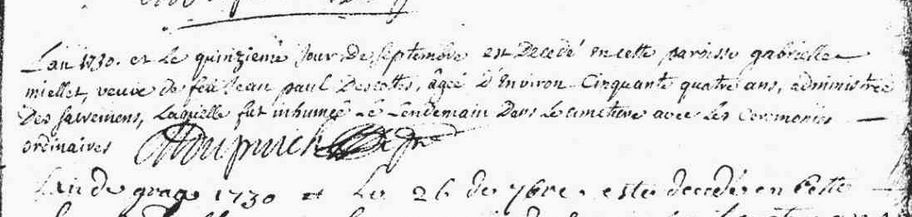 L'an 1730. et le quinzieme jour de septembre est decedé en cette paroisse gabrielle
miellet, veuve de feu jean paul Descottes, âgeé d'environ Cinquante quatre ans, administreé
Des sacremens, laquelle fut inhumeé le lendemain dans le cimetiere avec les ceremonies
ordinaires
L'an de grace 1730 et le 26 de 7bre est decedé en cette